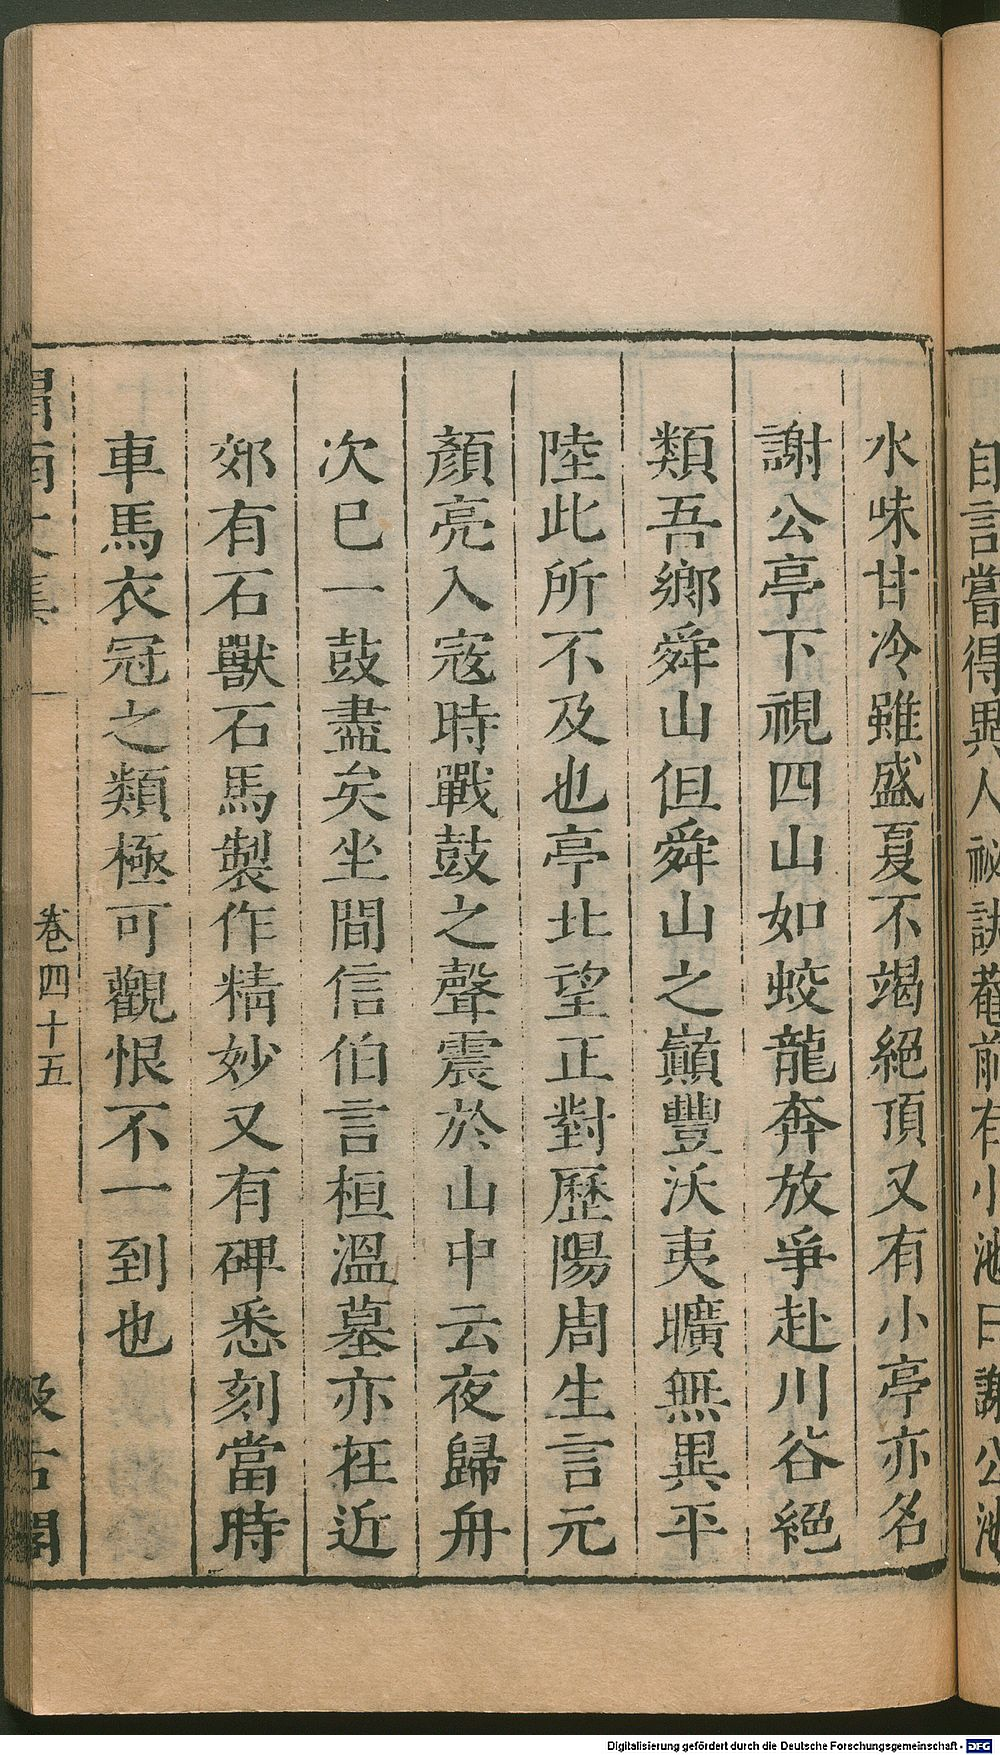 自言嘗得異人祕訣菴前有小池曰謝公池
水味甘冷雖盛夏不竭絕頂又有小亭亦名
謝公亭下視四山如蛟龍奔放爭赴川谷絕
類吾鄉舜山但舜山之巔豐沃夷曠無異平
陸此所不及也亭北望正對歷陽周生言元
顏亮入寇時戰鼓之聲震於山中云夜歸舟
次已一鼓盡矣坐間信伯言桓溫墓亦在近
郊有石獸石馬製作精妙又有碑悉刻當時
車馬衣冠之類極可觀恨不一到也
渭南文集
卷四十五
汲古閣
Digitalisierung gefördert durch die Deutsche Forschungsgemeinschaft - DFG